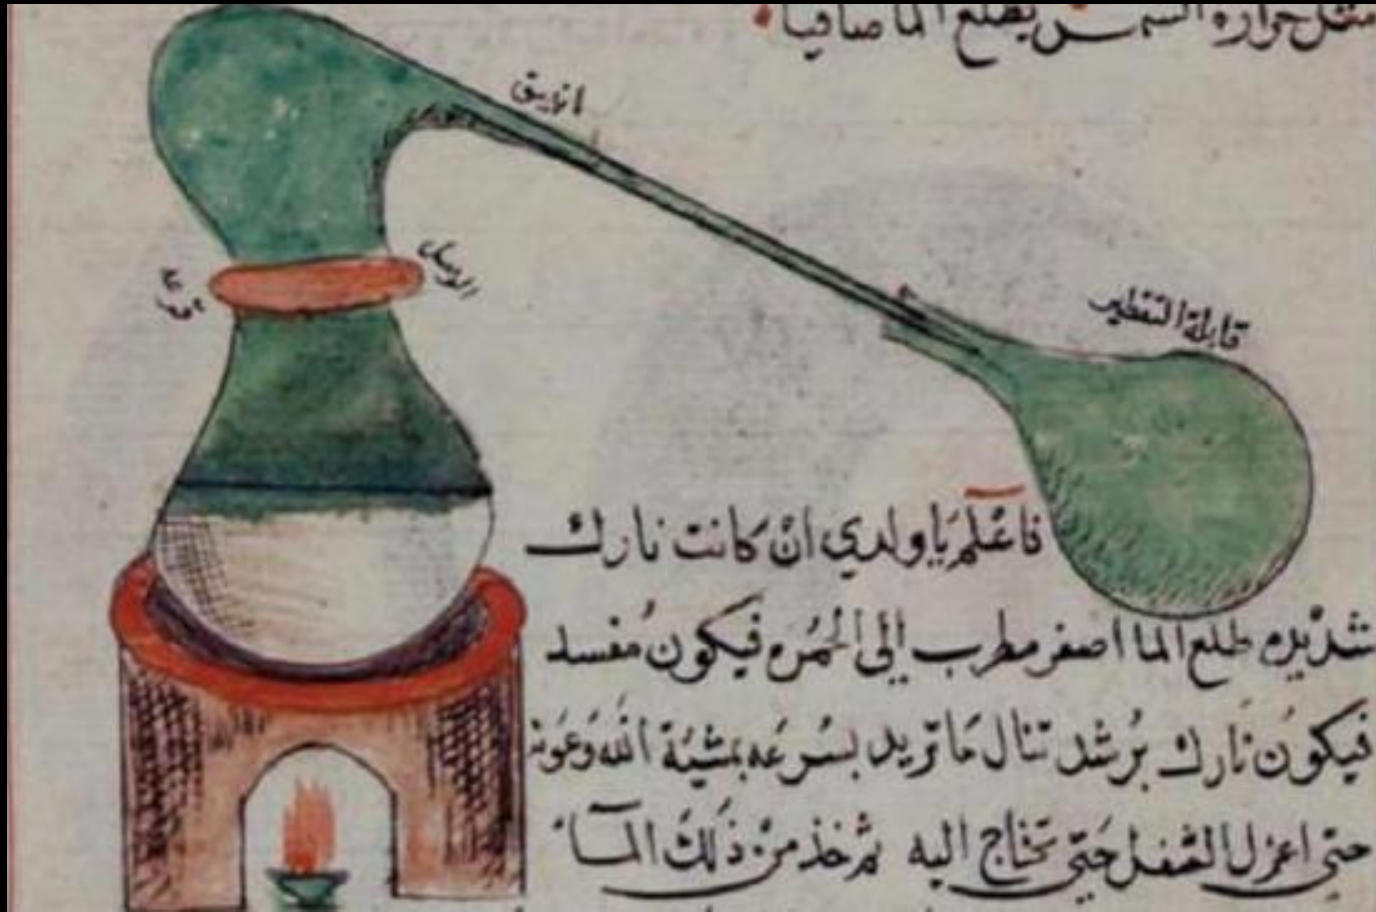 مثل حرارة الشمس يطلع الما صافيا
انبيق
قابلة التقطير
فاعْلَم يَا ولدي انْ كانت نارك
شديده طلع الما اصفر مطرب الى الحُمره فيكون مُفسد
فيكونُ نارك برُشد تنال مَا تريد بسُرعه بمشيَة الله وَعَونه
حتى اعزل الثفل حَتى تحتاج اليه ثم خذ منْ ذلكَ المآء